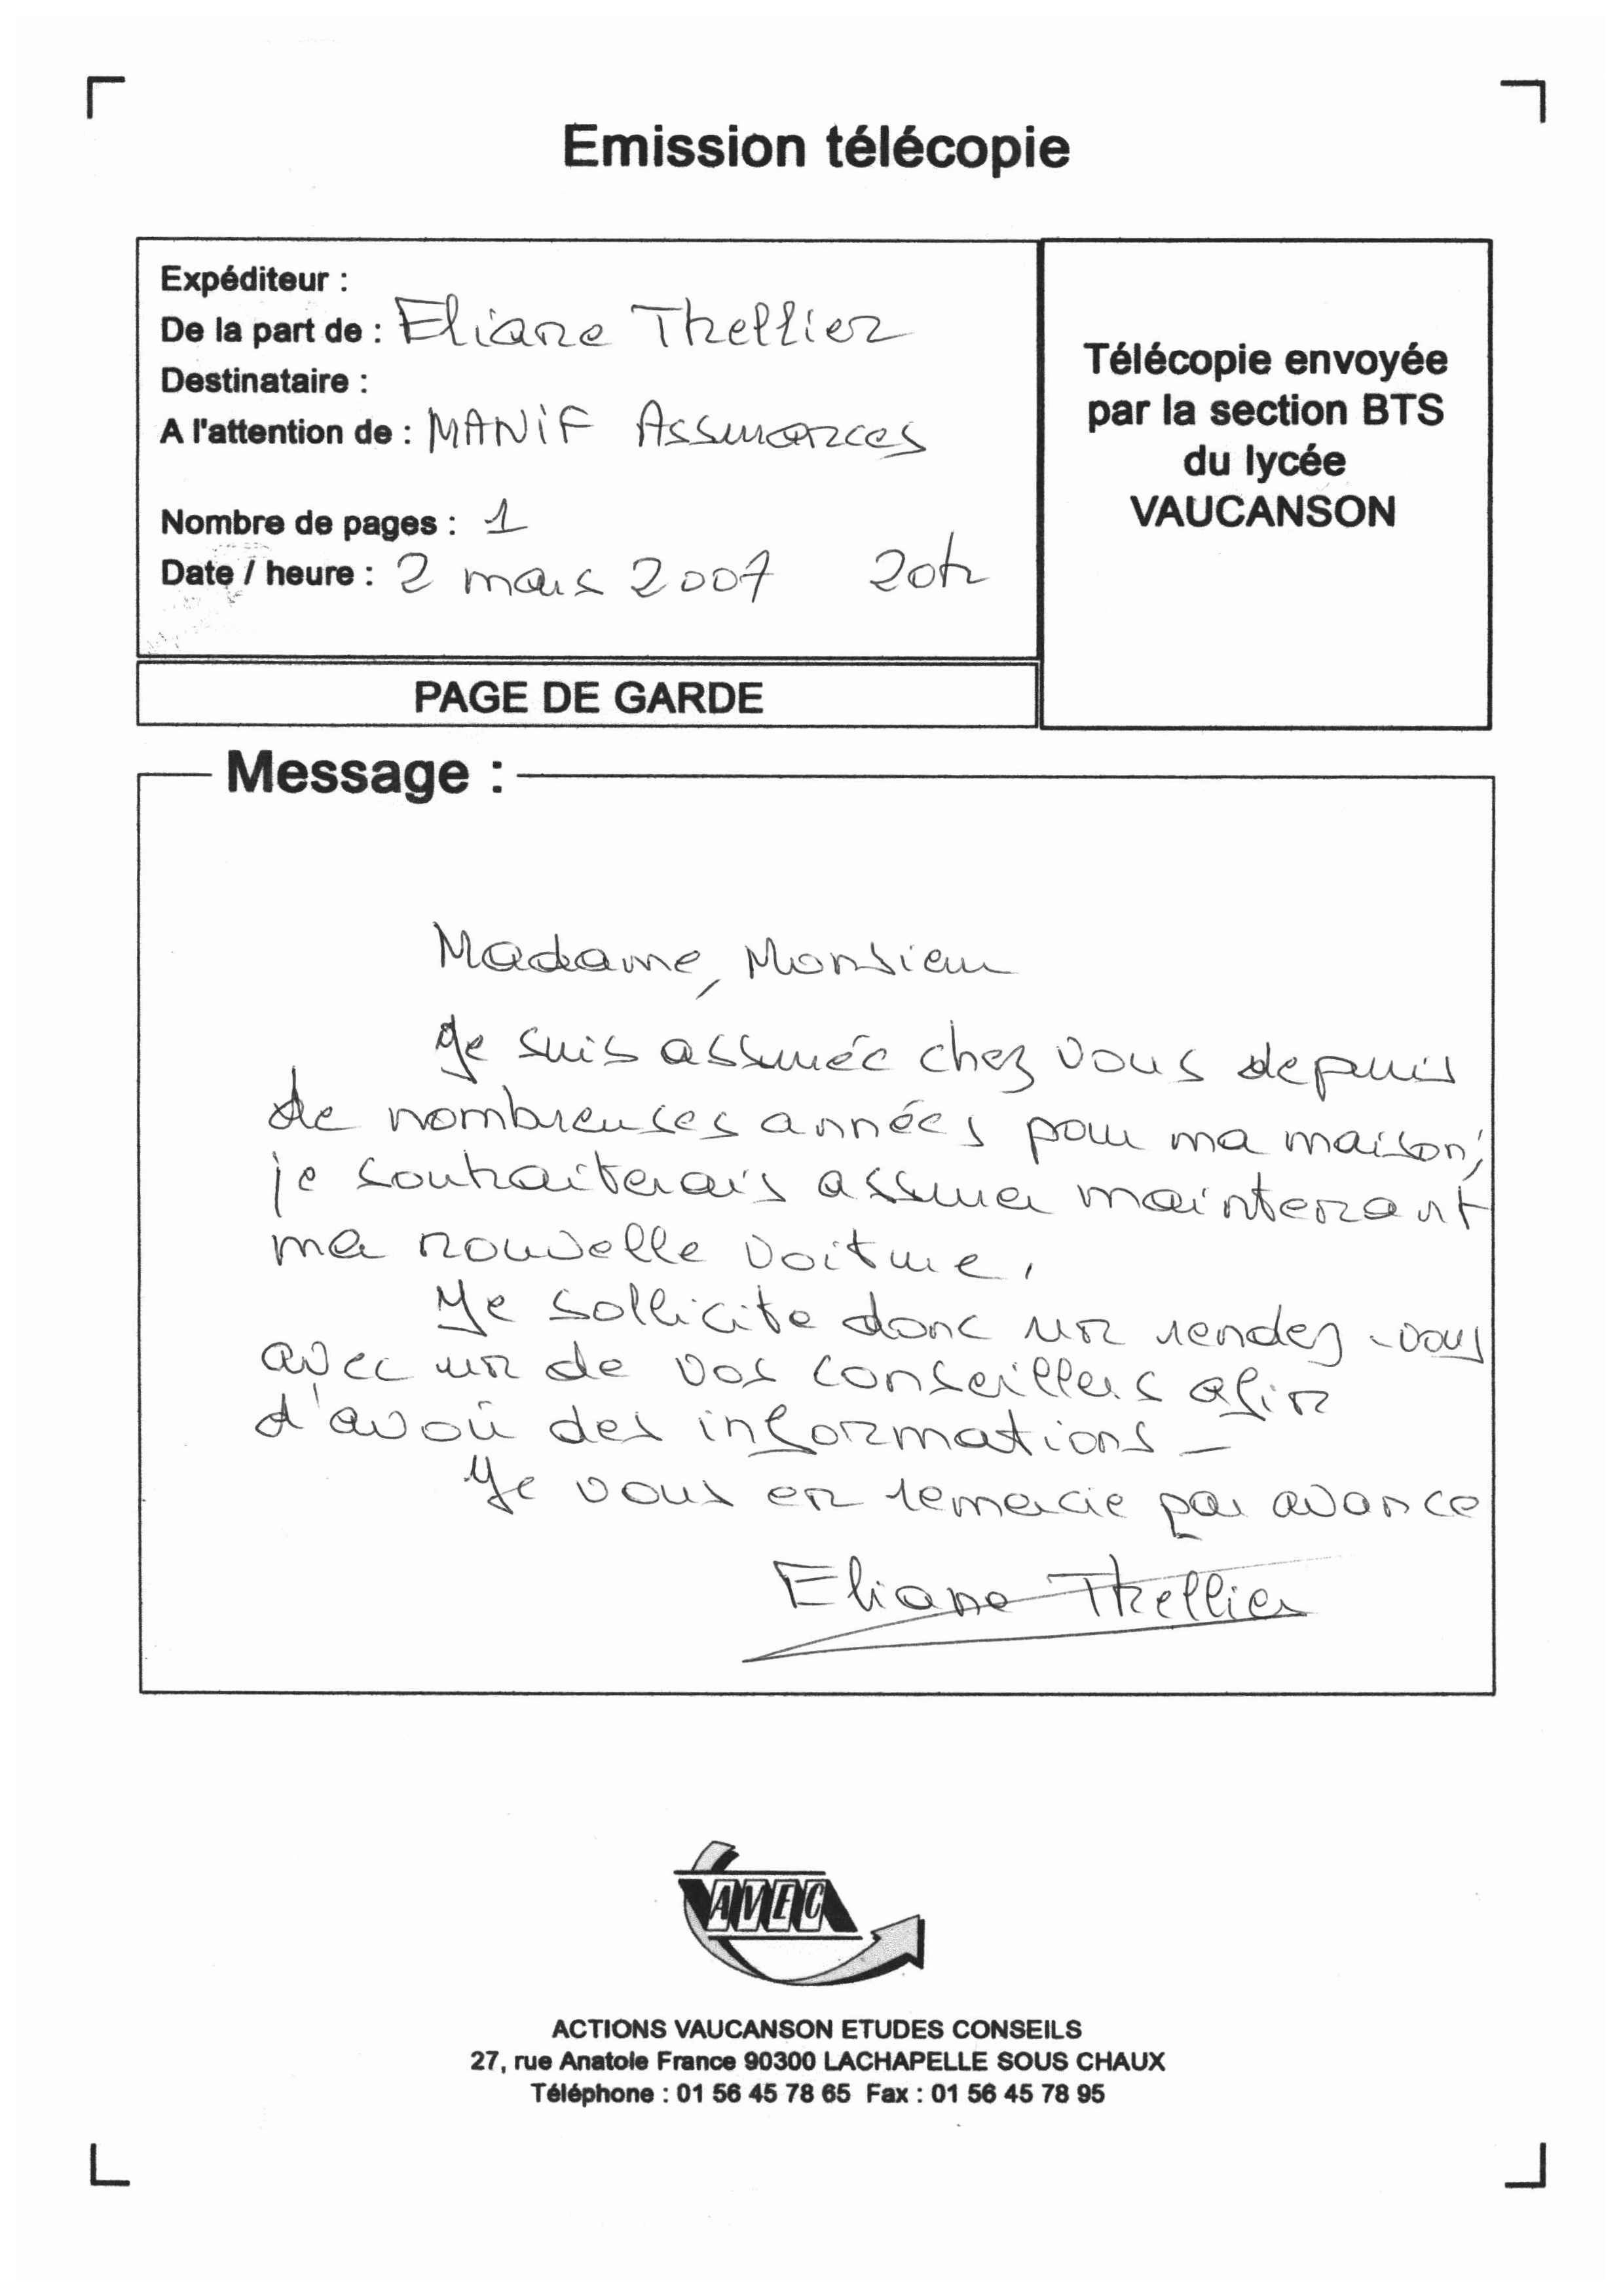 Emission télécopie
Expéditeur :
De la part de : Eliane Thellier
Destinataire :
A l'attention de : MANIF Assurances
Nombre de pages : 1
Date / heure : 2 mars 2007 20h
Télécopie envoyée
par la section BTS
du lycée
VAUCANSON
PAGE DE GARDE
Message :
Madame, Monsieur
Je suis assurée chez vous depuis
de nombreuses années pour ma maison,
je souhaiterais assurer maintenant
ma nouvelle voiture.
Je sollicite donc un rendez-vous
avec un de vos conseillers afin
d'avoir des informations -
Je vous en remercie par avance
Eliane Thellier
AVEC
ACTIONS VAUCANSON ETUDES CONSEILS
27, rue Anatole France 90300 LACHAPELLE SOUS CHAUX
Téléphone : 01 56 45 78 65 Fax : 01 56 45 78 95